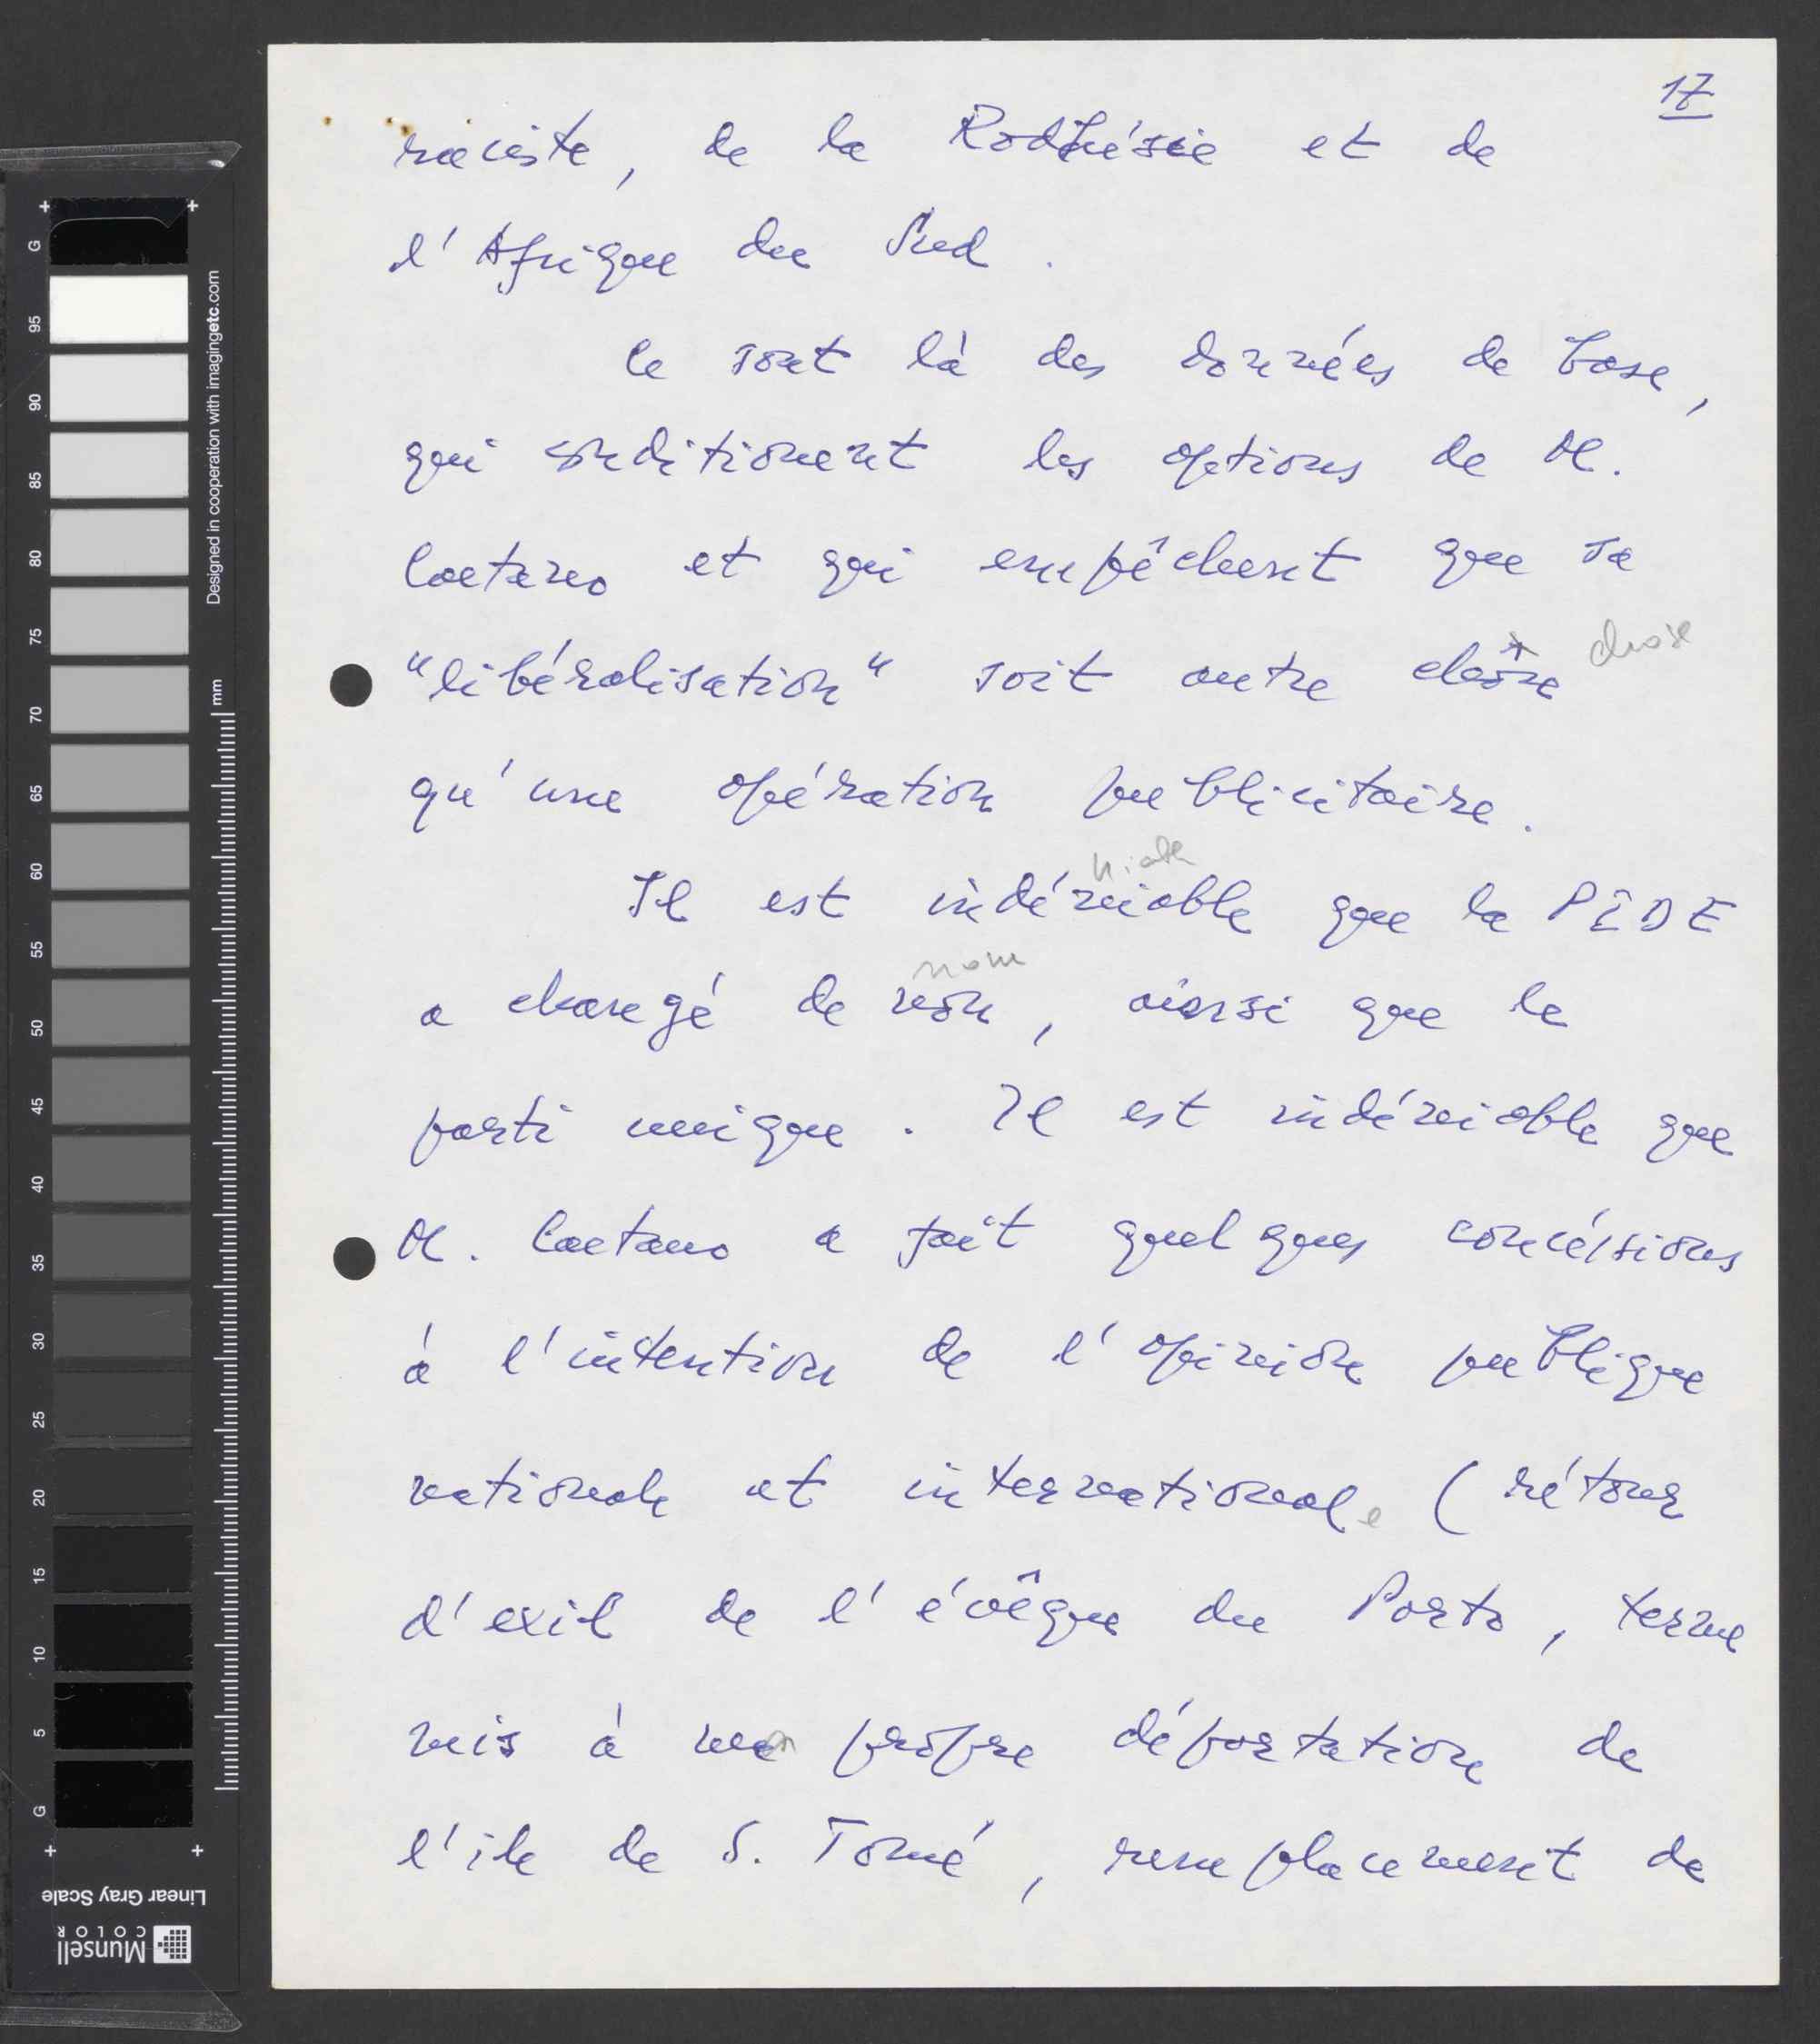 17
raciste, de la Rodhésie et de
l'Afrique du Sud.
Ce sont là des données de base,
qui conditionent les options de M.
Caetano et qui empêchent que sa
"libéralisation" soit autre chose chose
qu'une opération publicitaire.
Il est indéniable que la PIDE
nom
a changé de non, ainsi que le
parti unique. Il est indéniable que
M. Caetano a fait quelques concéssions
à l'intention de l'opinion publique
nationale et internationale (rétour
d'exil de l'évêque du Porto, terme
mis à mon propre déportation de
l'île de S. Tomé, remplacement de
G 95 90 85 80 75 70 65 60 55 50 45 40 35 30 25 20 15 10 5 G
Designed in cooperation with imagingetc.com
mm
Linear Gray Scale
Munsell
COLOR